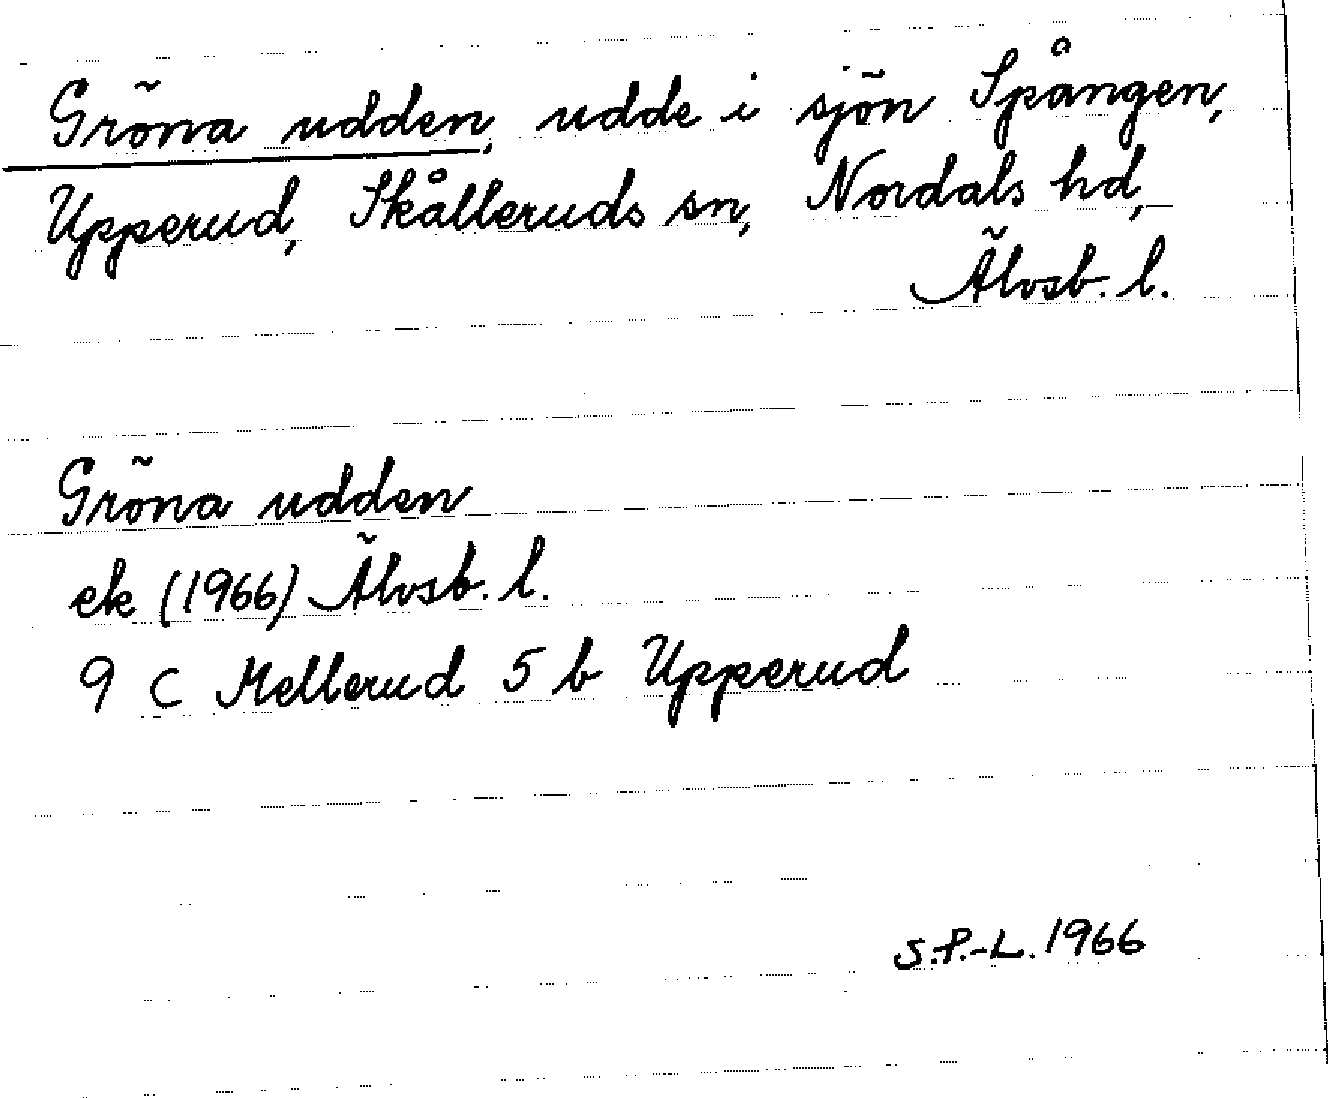 Gröna udden, udde i sjön Spången,
Upperud, Skålleruds sn, Nordals hd,
Älvsb. l.
Gröna udden
ek (1966) Älvsb. l.
9 C Mellerud 5 b Upperud
S.P.-L. 1966